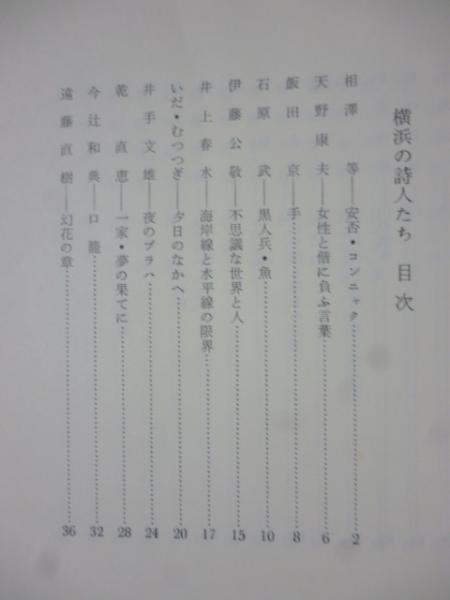 横浜の詩人たち 目次
相澤 等――安否・コンニャク…………2
天野康夫――女性と偕に負ふ言葉…………6
飯田 京――手…………8
石原 武――黒人兵・魚…………10
伊藤公敬――不思議な世界と人…………15
井上春水――海岸線と水平線の限界…………17
いだ・むつつぎ――夕日のなかへ…………20
井手文雄――夜のプラハ…………24
乾 直恵――一家・夢の果てに…………28
今辻和典――口籠…………32
遠藤直樹――幻花の章…………36